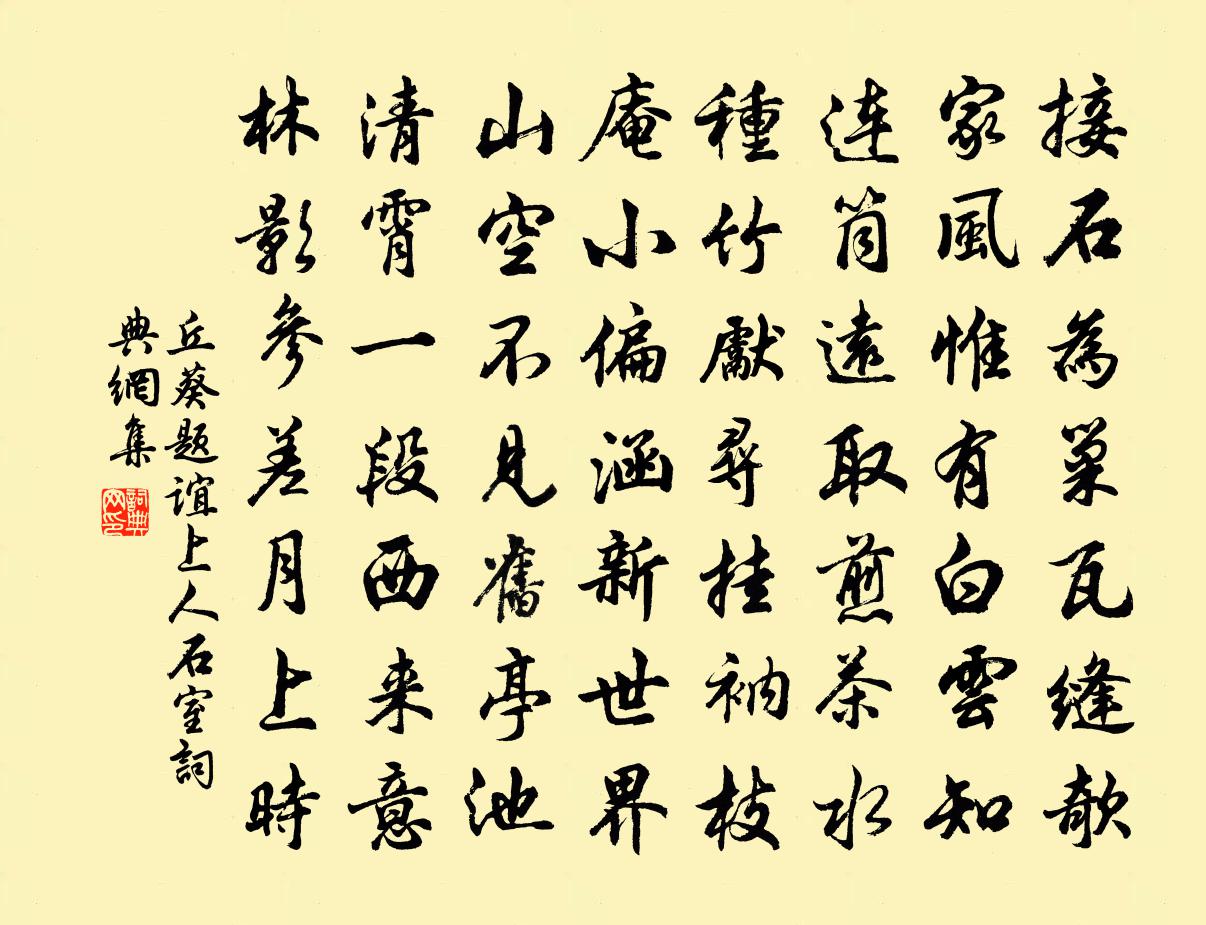 接石為巢瓦縫欹
家風惟有白雲知
連筒遠取煎茶水
種竹獻尋挂衲枝
庵小偏涵新世界
山空不見舊亭池
清霄一段西来意
林影參差月上時
丘葵题誼上人石室詞
典網集